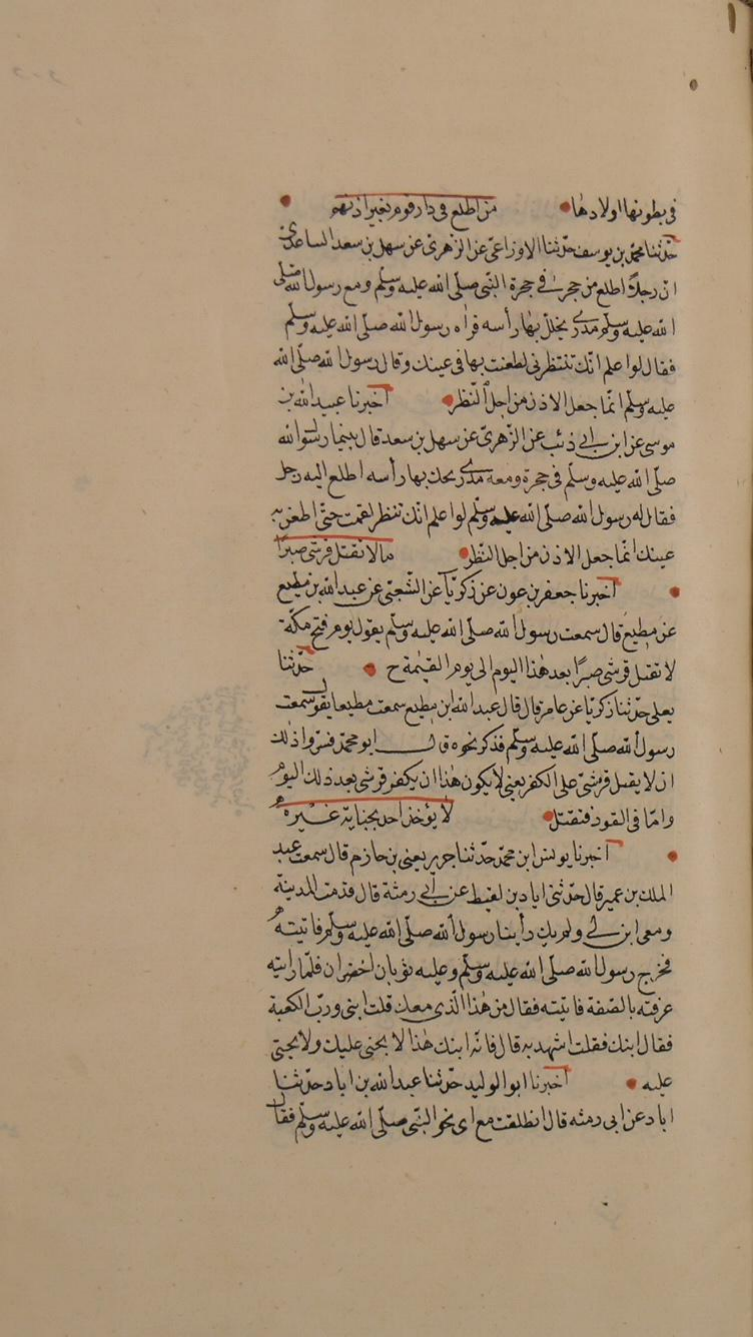 في بطونها اولادها من اطلع في دار قوم بغير اذنهم
حدّثنا محمّد بن يوسف حدّثنا الاوزاعيّ عن الزهريّ عن سهل بن سعد الساعديّ
انّ رجلاً اطلع من جحر في حجرة النّبي صلّى الله عليه وسلّم ومع رسول الله صلّى
الله عليه وسلّم مدرى يخلل بها رأسه فراه رسول الله صلّى الله عليه وسلّم
فقال لو اعلم انّك تنتظرني لطعنت بها في عينك وقال رسول الله صلّى الله
عليه وسلّم انّما جعل الاذن من اجل النّظر اخبرنا عبيد الله بن
موسى عن ابن ابي ذئب عن الزّهريّ عن سهل بن سعد قال بينما رسول الله
صلّى الله عليه وسلّم في حجرة ومعه مدرى يحك بها رأسه اطلع اليه رجل
فقال له رسول الله صلّى الله عليه وسلّم لو اعلم انّك تنظر لقمت حتّى اطعن به
عينك انّما جعل الاذن من اجل النّظر ما لا نقتل قرشى صبرًا
اخبرنا جعفر بن عون عن زكريّا عن الشّعبيّ عن عبد الله بن مطيع
عن مطيع قال سمعت رسول الله صلّى الله عليه وسلّم يقول يوم فتح مكّة
لا نقتل قرشي صبرًا بعد هٰذا اليوم الى يوم القيٰمة ح حدّثنا
يعلى حدّثنا زكريّا عن عامر قال قال عبد الله ابن مطيع سمعت مطيعا يقول سمعت
رسول الله صلّى الله عليه وسلّم فذكر نحوه قال ابو محمّد فسّروا ذٰلك
ان لا يقتل قرشيّ على الكفر يعني لا يكون هٰذا ان يكفر قرشي بعد ذلك اليوم
وامّا في القود فنقتل لا يؤخذ احد بجناية غيره
اخبرنا يونس ابن محمّد حدّثنا جرير يعني بن حازم قال سمعت عبد
الملك بن عمير قال حدّثني اياد بن لقيط عن ابي رمثة قال قدمت المدينة
ومعي ابن لي ولم يك رأينا رسول الله صلّى الله عليه وسلّم فاتيته
فخرج رسول الله صلّى الله عليه وسلّم وعليه ثوبان اخضران فلمّا رأيته
عرفته بالصّفة فاتيته فقال من هٰذا الّذي معك قلت ابني وربّ الكعبة
فقال ابنك فقلت اشهد به قال فانّه ابنك هٰذا لا يجني عليك ولا تجني
عليه اخبرنا ابو الوليد حدّثنا عبد الله بن اياد حدّثنا
اياد عن ابي رمثه قال انطلقت مع ابي نحو النّبي صلّى الله عليه وسلّم فقال